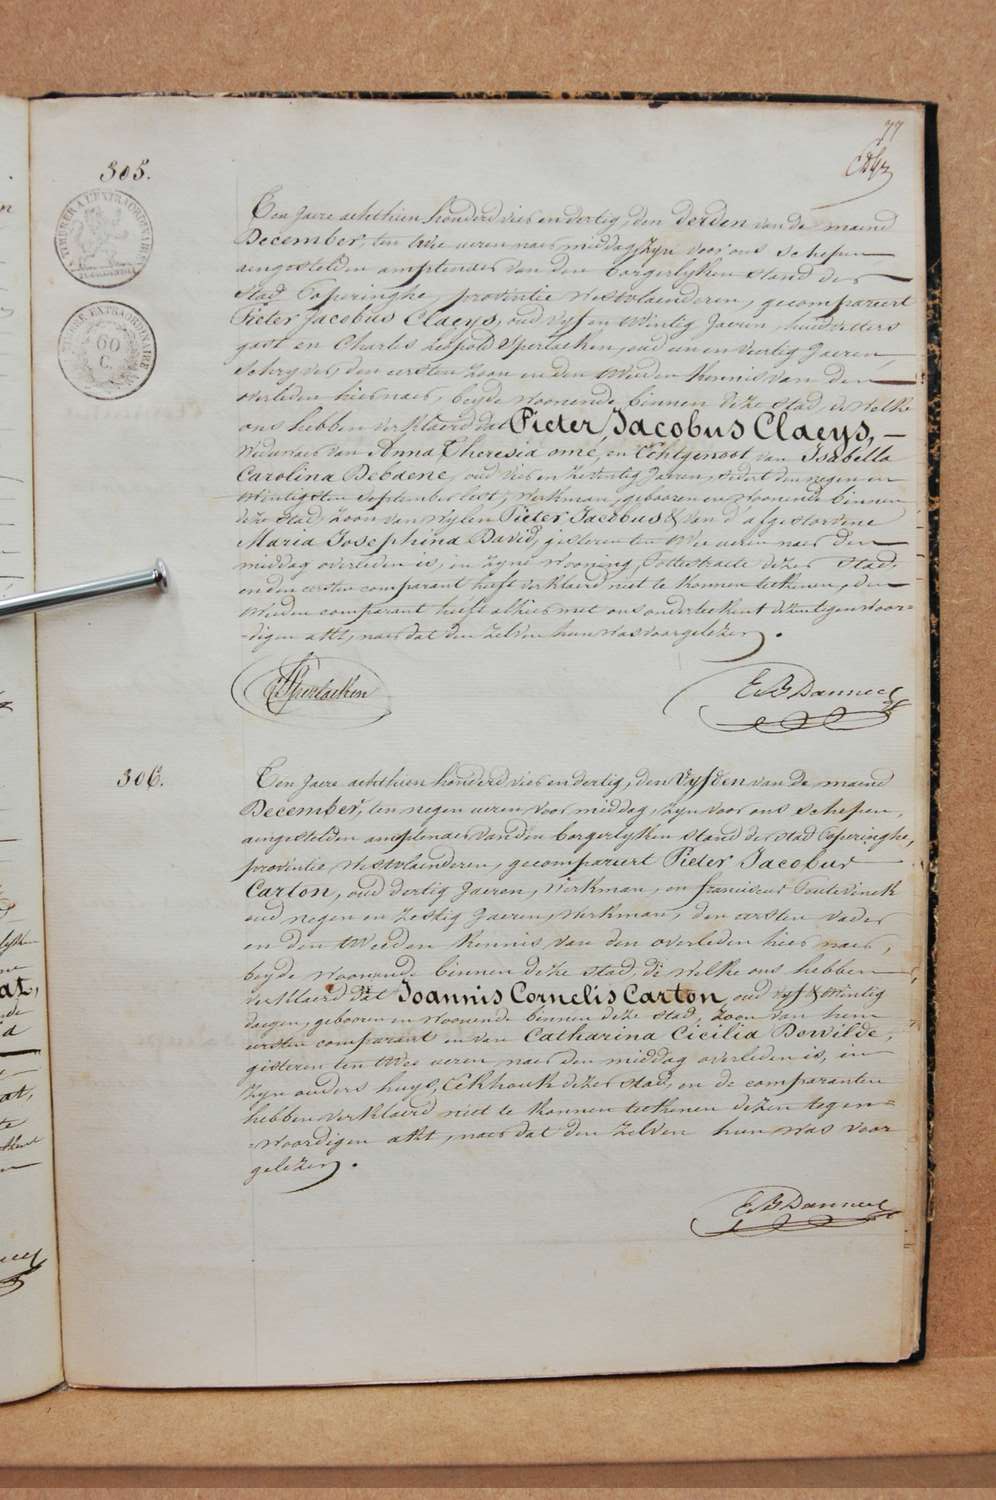 77
305.
TIMBRE A L'EXTRAORDINAIRE
Ten Jaere achthien honderd vier en dertig, den derden van de maend
December, ten twee ueren naer middag, zyn voor ons Schepen
aengestelden amptenaer van den borgerlyken stand der
Stad Poperinghe, provintie Westvlaenderen, gecompareert
Pieter Jacobus Claeys, oud vyf en twintig Jaeren, huidvetters
gast en Charles Leopold Sperlaeken, oud een en veertig Jaeren
Schryver, den eersten zoon en den tweeden kennis van den
overleden hier naer, beyde woonende binnen deze Stad, de welke
ons hebben verklaerd dat Pieter Jacobus Claeys,
Weduwaer van Anna Theresia ome, en Echtgenoot van Isabella
Carolina Debaene, oud vier en zeventig Jaeren, sedert den negen en
twintigsten September lest, Werkman, gebooren en woonende binnen
deze Stad, zoon van wylen Pieter Jacobus & van d'afgestorvene
Maria Josephina David, gisteren ten twee ueren naer den
middag overleden is, in zyne wooning, Pottestraete dezer Stad,
en den eersten comparant heeft verklaerd niet te konnen teekenen, den
tweeden comparant heeft alhier met ons onderteekent dezen tegenwoor-
-digen akt, naer dat den zelven hun was voorgelezen.
Sperlaeken
306.
Ten Jaere achthien honderd vier en dertig, den Vyfden van de maend
December, ten negen ueren voor middag, zyn voor ons Schepen,
aengestelden amptenaer van den borgerlyken stand der stad Poperinghe,
provintie Westvlaenderen, gecompareert Pieter Jacobus
Carton, oud dertig Jaeren, Werkman, en franciscus
oud negen en zestig Jaeren, Werkman, den eersten vader
en den tweeden kennis van den overleden hier naer,
beyde woonende binnen deze stad, de welke ons hebben
verklaerd dat Joannis Cornelis Carton, oud vyf & twintig
daegen, gebooren en woonende binnen deze stad, zoon van hem
eersten comparant en van Catharina Cicilia Dewilde,
gisteren ten twee ueren naer den middag overleden is, in
zyn ouders huys, Eekhoute dezer stad, en de comparanten
hebben verklaerd niet te konnen teekenen dezen tegen-
-woordigen akt, naer dat den zelven hun was voor
gelezen.